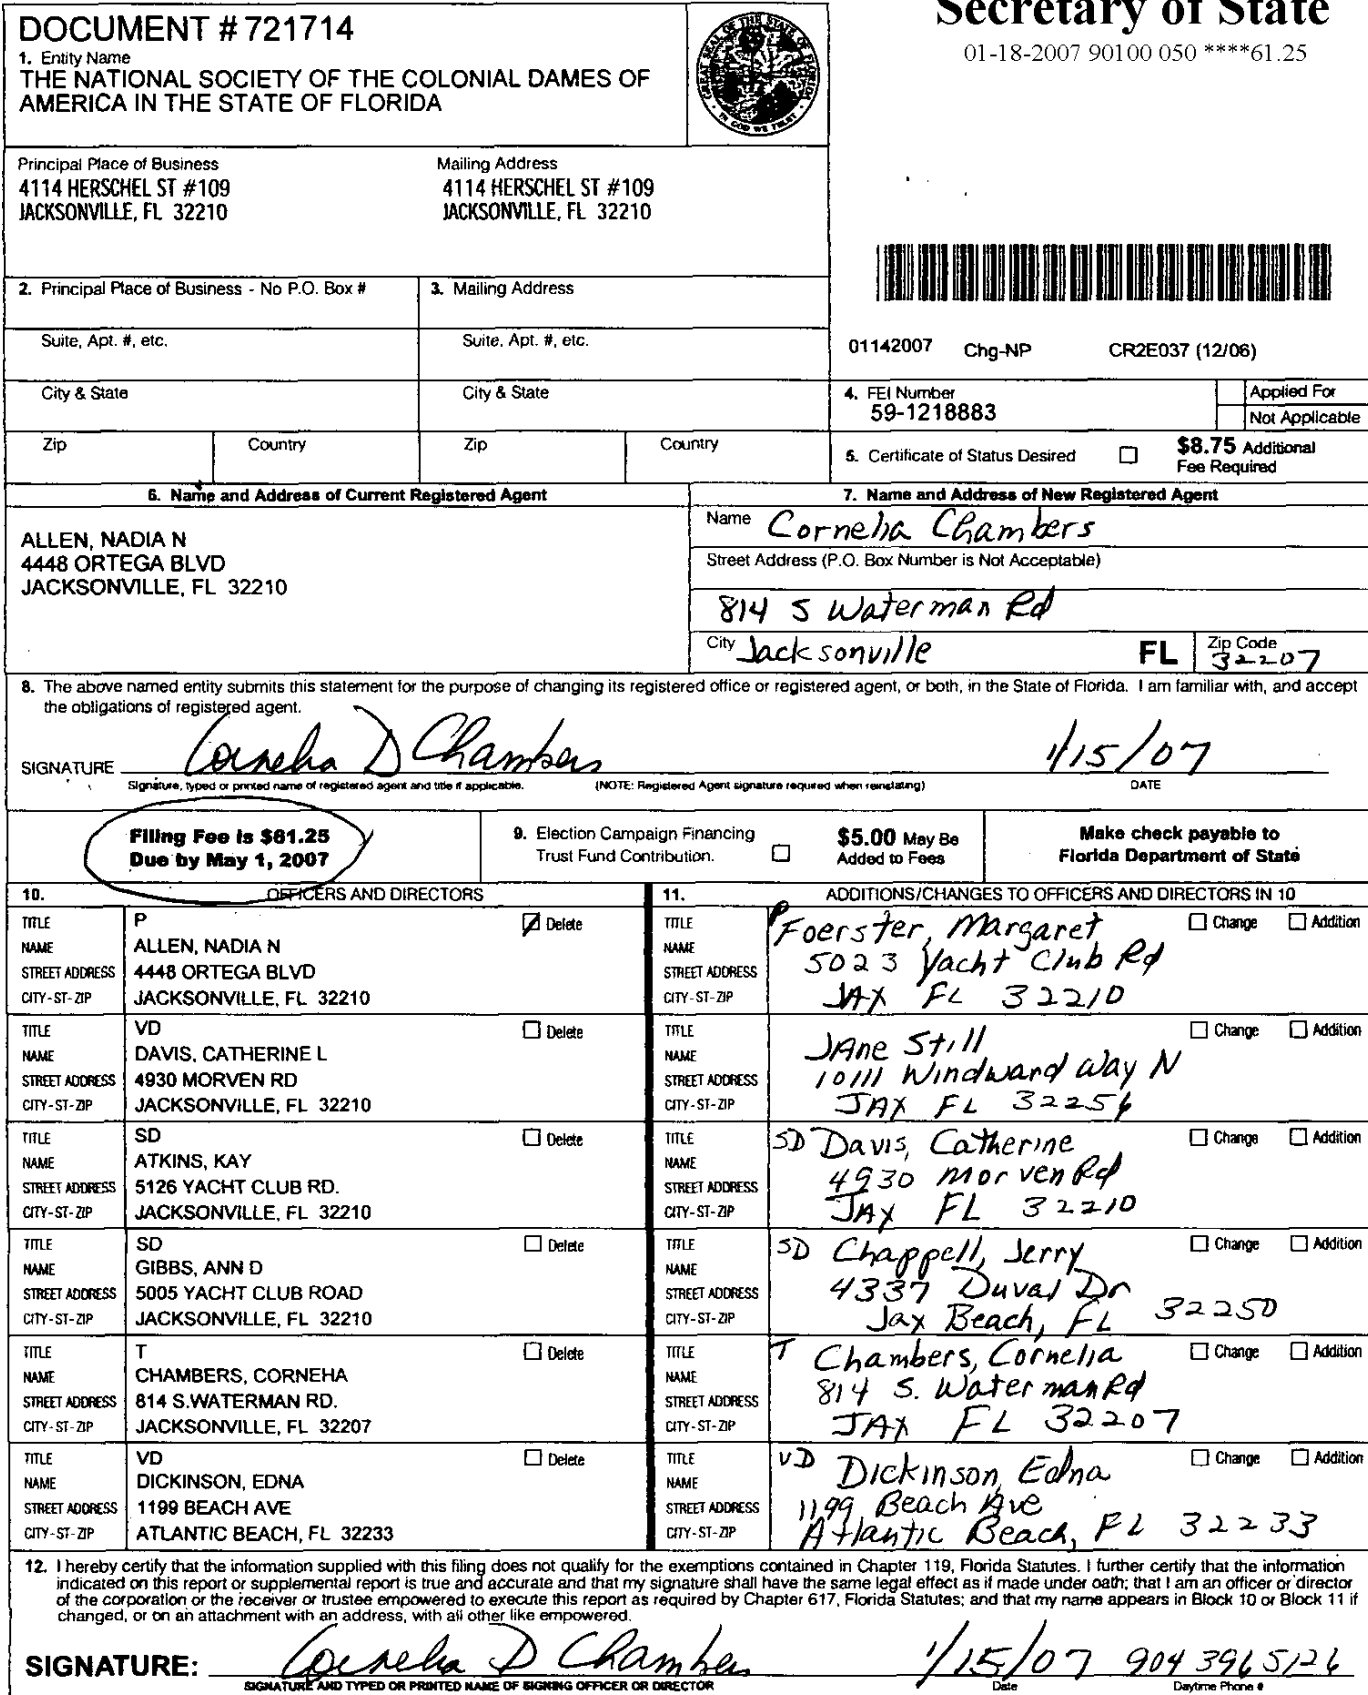 Secretary of State
01-18-2007 90100 050 ****61.25
DOCUMENT # 721714
1. Entity Name
THE NATIONAL SOCIETY OF THE COLONIAL DAMES OF
AMERICA IN THE STATE OF FLORIDA
Principal Place of Business
4114 HERSCHEL ST #109
JACKSONVILLE, FL 32210
Mailing Address
4114 HERSCHEL ST #109
JACKSONVILLE, FL 32210
2. Principal Place of Business - No P.O. Box #
3. Mailing Address
Suite, Apt. #, etc.
Suite, Apt. #, etc.
City & State
City & State
Zip Country Zip Country
01142007 Chg-NP CR2E037 (12/06)
4. FEI Number
59-1218883
Applied For
Not Applicable
5. Certificate of Status Desired
$8.75 Additional
Fee Required
6. Name and Address of Current Registered Agent
ALLEN, NADIA N
4448 ORTEGA BLVD
JACKSONVILLE, FL 32210
7. Name and Address of New Registered Agent
Name Cornelia Chambers
Street Address (P.O. Box Number is Not Acceptable)
814 S Waterman Rd
City Jacksonville FL Zip Code 32207
8. The above named entity submits this statement for the purpose of changing its registered office or registered agent, or both, in the State of Florida. I am familiar with, and accept
the obligations of registered agent.
SIGNATURE Cornelia D Chambers 1/15/07
Signature, typed or printed name of registered agent and title if applicable. (NOTE: Registered Agent signature required when reinstating) DATE
Filing Fee is $61.25
Due by May 1, 2007
9. Election Campaign Financing
Trust Fund Contribution.
$5.00 May Be
Added to Fees
Make check payable to
Florida Department of State
10. OFFICERS AND DIRECTORS
TITLE P Delete
NAME ALLEN, NADIA N
STREET ADDRESS 4448 ORTEGA BLVD
CITY-ST-ZIP JACKSONVILLE, FL 32210
TITLE VD Delete
NAME DAVIS, CATHERINE L
STREET ADDRESS 4930 MORVEN RD
CITY-ST-ZIP JACKSONVILLE, FL 32210
TITLE SD Delete
NAME ATKINS, KAY
STREET ADDRESS 5126 YACHT CLUB RD.
CITY-ST-ZIP JACKSONVILLE, FL 32210
TITLE SD Delete
NAME GIBBS, ANN D
STREET ADDRESS 5005 YACHT CLUB ROAD
CITY-ST-ZIP JACKSONVILLE, FL 32210
TITLE T Delete
NAME CHAMBERS, CORNEHA
STREET ADDRESS 814 S.WATERMAN RD.
CITY-ST-ZIP JACKSONVILLE, FL 32207
TITLE VD Delete
NAME DICKINSON, EDNA
STREET ADDRESS 1199 BEACH AVE
CITY-ST-ZIP ATLANTIC BEACH, FL 32233
11. ADDITIONS/CHANGES TO OFFICERS AND DIRECTORS IN 10
TITLE P Change Addition
NAME Foerster, Margaret
STREET ADDRESS 5023 Yacht Club Rd
CITY-ST-ZIP JAX FL 32210
TITLE Change Addition
NAME JAne Still
STREET ADDRESS 10111 Windward Way N
CITY-ST-ZIP JAX FL 32256
TITLE SD Change Addition
NAME Davis, Catherine
STREET ADDRESS 4930 Morven Rd
CITY-ST-ZIP JAX FL 32210
TITLE SD Change Addition
NAME Chappell, Jerry
STREET ADDRESS 4337 Duval Dr
CITY-ST-ZIP Jax Beach, FL 32250
TITLE T Change Addition
NAME Chambers, Cornelia
STREET ADDRESS 814 S. Waterman Rd
CITY-ST-ZIP JAX FL 32207
TITLE VD Change Addition
NAME Dickinson, Edna
STREET ADDRESS 1199 Beach Ave
CITY-ST-ZIP Atlantic Beach, FL 32233
12. I hereby certify that the information supplied with this filing does not qualify for the exemptions contained in Chapter 119, Florida Statutes. I further certify that the information
indicated on this report or supplemental report is true and accurate and that my signature shall have the same legal effect as if made under oath; that I am an officer or director
of the corporation or the receiver or trustee empowered to execute this report as required by Chapter 617, Florida Statutes; and that my name appears in Block 10 or Block 11 if
changed, or on an attachment with an address, with all other like empowered.
SIGNATURE: Cornelia D Chambers 1/15/07 904 3965126
SIGNATURE AND TYPED OR PRINTED NAME OF SIGNING OFFICER OR DIRECTOR Date Daytime Phone #